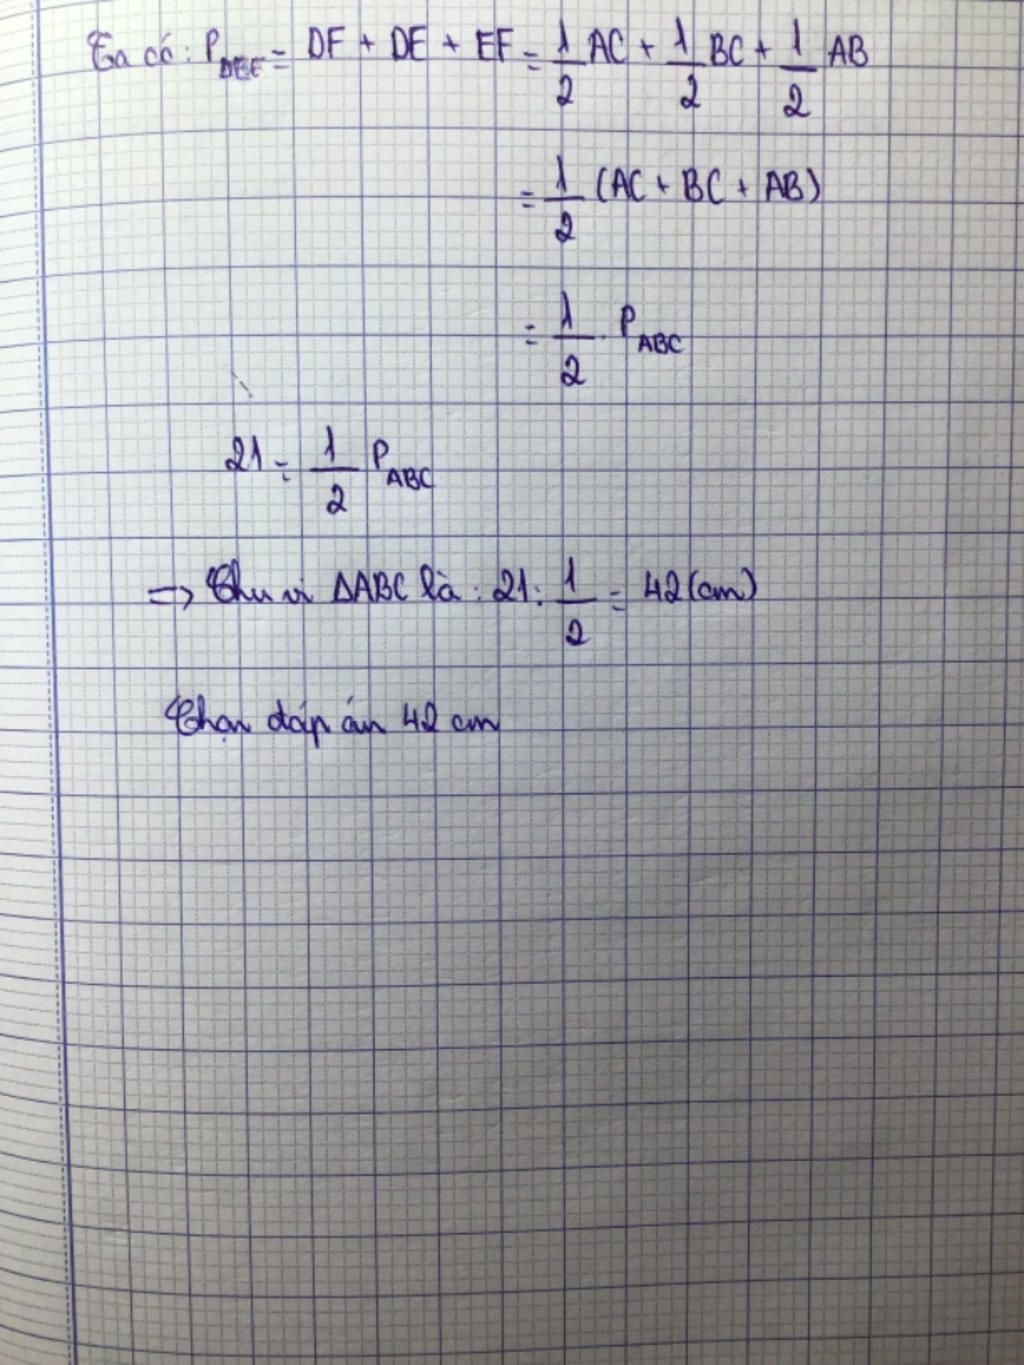 Ta có: P_DEF = DF + DE + EF = 1/2 AC + 1/2 BC + 1/2 AB
= 1/2 (AC + BC + AB)
= 1/2 . P_ABC
21 = 1/2 P_ABC
=> Chu vi ΔABC là: 21 : 1/2 = 42 (cm)
Chọn đáp án 42 cm